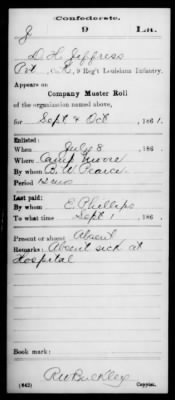 Confederate.
J 9 La.
D. H. Jeffress
Pvt, Co. E, 9 Reg't Louisiana Infantry.
Appears on
Company Muster Roll
of the organization named above,
for Sept & Oct, 1861.
Enlisted:
When July 8, 186 .
Where Camp Moore
By whom B. W. Pearce
Period 12 mos
Last paid:
By whom E. Phillips
To what time Sept 1, 186 .
Present or absent Absent
Remarks: Absent sick at
Hospital
Book mark:
R W Buckley
(642) Copyist.